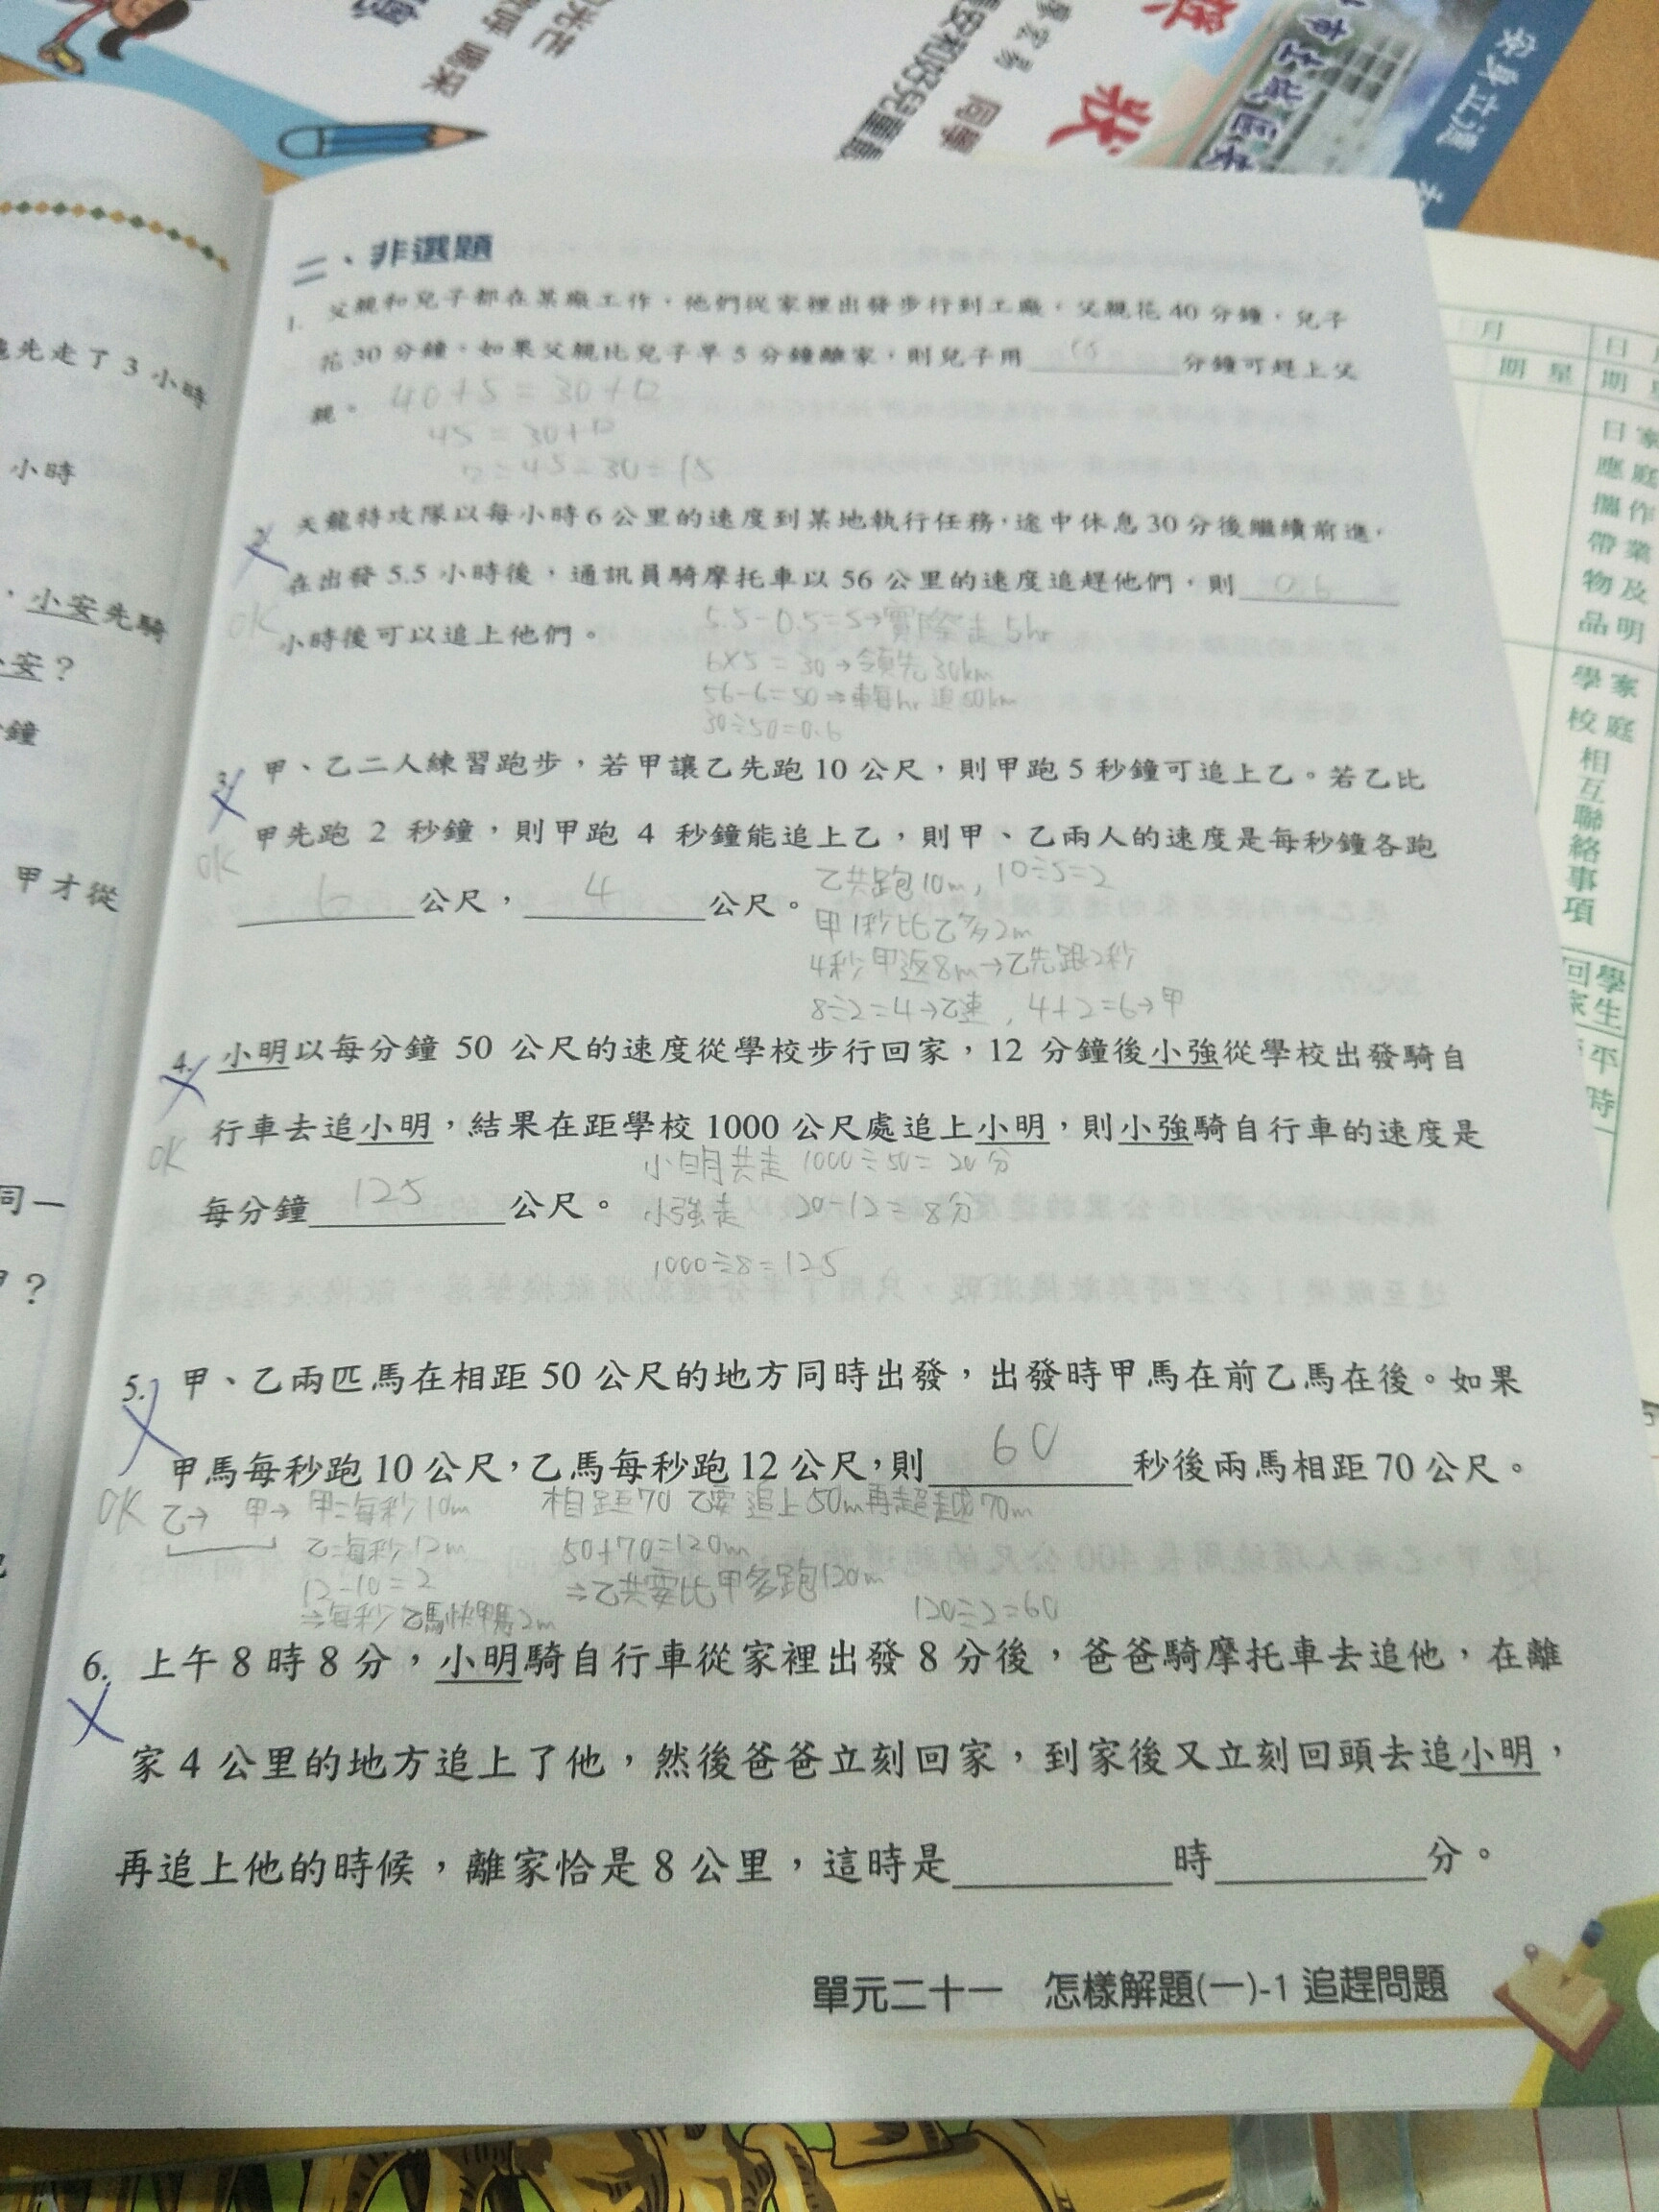 二、非選題
1. 父親和兒子都在某廠工作，他們從家裡出發步行到工廠，父親花 40 分鐘，兒子
花 30 分鐘。如果父親比兒子早 5 分鐘離家，則兒子用 15 分鐘可趕上父
親。
40+5=30+
45=30+
=45-30=15
2. 天龍特攻隊以每小時 6 公里的速度到某地執行任務，途中休息 30 分後繼續前進，
在出發 5.5 小時後，通訊員騎摩托車以 56 公里的速度追趕他們，則 0.6
小時後可以追上他們。
OK
5.5-0.5=5→實際走5hr
6×5=30→領先30km
56-6=50⇒車每hr追50km
30÷50=0.6
3. 甲、乙二人練習跑步，若甲讓乙先跑 10 公尺，則甲跑 5 秒鐘可追上乙。若乙比
甲先跑 2 秒鐘，則甲跑 4 秒鐘能追上乙，則甲、乙兩人的速度是每秒鐘各跑
6 公尺，4 公尺。
OK
乙共跑10m，10÷5=2
甲1秒比乙多2m
4秒甲返8m→乙先跟2秒
8÷2=4→乙速，4+2=6→甲
4. 小明以每分鐘 50 公尺的速度從學校步行回家，12 分鐘後小強從學校出發騎自
行車去追小明，結果在距學校 1000 公尺處追上小明，則小強騎自行車的速度是
每分鐘 125 公尺。
OK
小明共走 1000÷50=20分
小強走 20-12=8分
1000÷8=125
5. 甲、乙兩匹馬在相距 50 公尺的地方同時出發，出發時甲馬在前乙馬在後。如果
甲馬每秒跑 10 公尺，乙馬每秒跑 12 公尺，則 60 秒後兩馬相距 70 公尺。
OK
乙→ 甲→ 甲=每秒10m
乙=每秒12m
12-10=2
⇒每秒乙馬快甲馬2m
相距70 乙要追上50m再超越70m
50+70=120m
⇒乙共要比甲多跑120m
120÷2=60
6. 上午 8 時 8 分，小明騎自行車從家裡出發 8 分後，爸爸騎摩托車去追他，在離
家 4 公里的地方追上了他，然後爸爸立刻回家，到家後又立刻回頭去追小明，
再追上他的時候，離家恰是 8 公里，這時是 時 分。
單元二十一 怎樣解題(一)-1 追趕問題
先走了 3 小時
小時
，小安先騎
安？
鐘
甲才從
同一
？
狀
同學
安身立
月
日
期 星
期
日 家
應 庭
攜 作
帶 業
物 及
品 明
學 家
校 庭
相
互
聯
絡
事
項
回 學
家 生
平
時